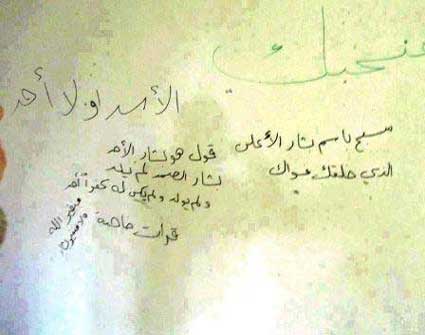 منحبك
الأسد او لا أحد
سبح باسم بشار الأعلى
الذي خلقك فسواك
قول هو بشار الأحد
بشار الصمد لم يلد
ولم يولد ولم يكن له كفوا أحد
قوات خاصة